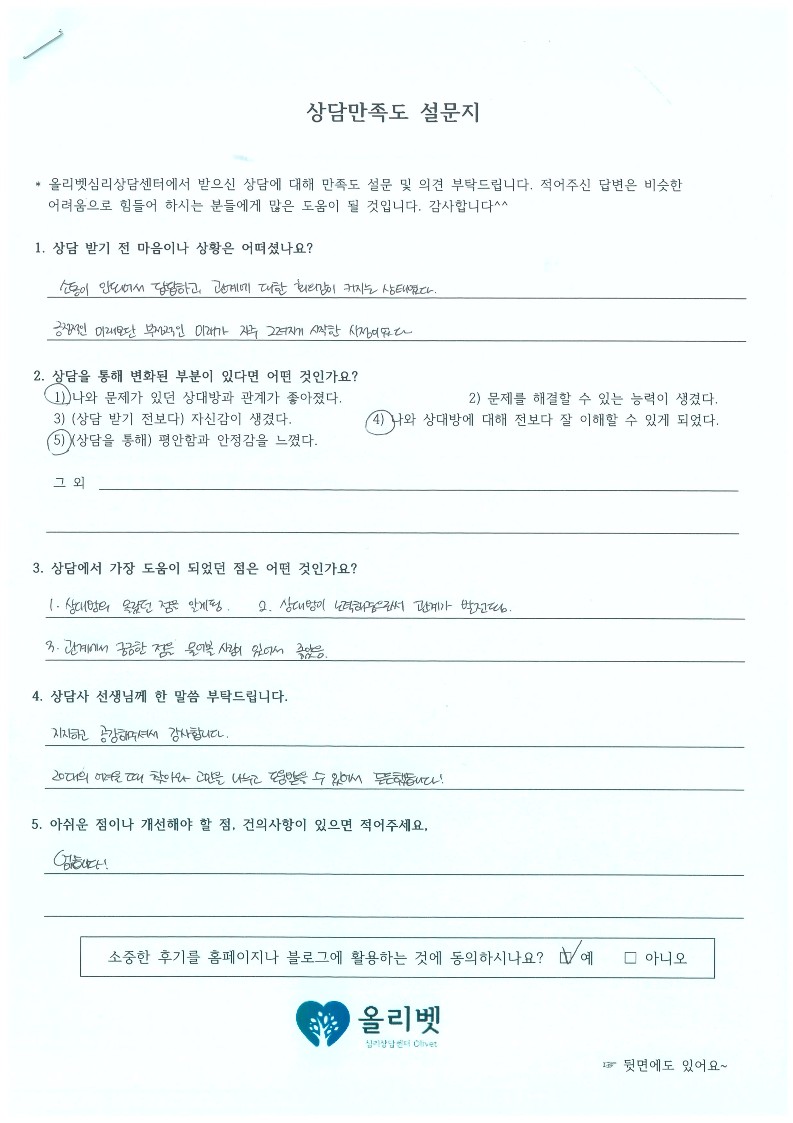 상담만족도 설문지
* 올리벳심리상담센터에서 받으신 상담에 대해 만족도 설문 및 의견 부탁드립니다. 적어주신 답변은 비슷한
어려움으로 힘들어 하시는 분들에게 많은 도움이 될 것입니다. 감사합니다^^
1. 상담 받기 전 마음이나 상황은 어떠셨나요?
소통이 안되어서 답답하고, 관계에 대한 회의감이 커지는 상태였다.
긍정적인 미래보단 부정적인 미래가 자주 그려지기 시작한 시점이었다
2. 상담을 통해 변화된 부분이 있다면 어떤 것인가요?
1) 나와 문제가 있던 상대방과 관계가 좋아졌다. 2) 문제를 해결할 수 있는 능력이 생겼다.
3) (상담 받기 전보다) 자신감이 생겼다. 4) 나와 상대방에 대해 전보다 잘 이해할 수 있게 되었다.
5) (상담을 통해) 평안함과 안정감을 느꼈다.
그 외
3. 상담에서 가장 도움이 되었던 점은 어떤 것인가요?
1. 상대방의 몰랐던 점을 알게됨. 2. 상대방이 노력해줌으로써 관계가 발전됨.
3. 관계에서 궁금한 점을 물어볼 사람이 있어서 좋았음.
4. 상담사 선생님께 한 말씀 부탁드립니다.
지지하고 공감해주셔서 감사합니다.
20대의 어려울 때 찾아와 고민을 나누고 도움받을 수 있어서 든든했습니다!
5. 아쉬운 점이나 개선해야 할 점, 건의사항이 있으면 적어주세요.
소중한 후기를 홈페이지나 블로그에 활용하는 것에 동의하시나요? ☑ 예 □ 아니오
올리벳
심리상담센터 Olivet
☞ 뒷면에도 있어요~